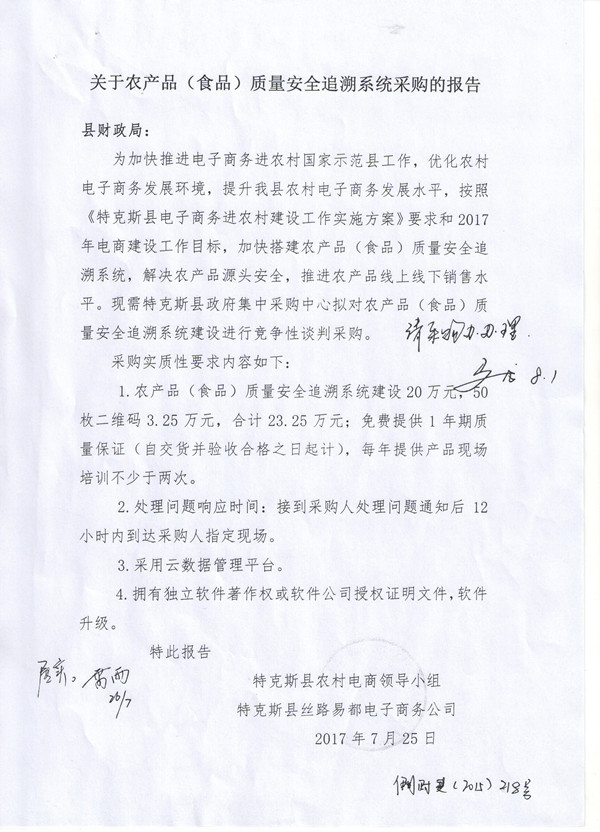 关于农产品（食品）质量安全追溯系统采购的报告
县财政局：
为加快推进电子商务进农村国家示范县工作，优化农村
电子商务发展环境，提升我县农村电子商务发展水平，按照
《特克斯县电子商务进农村建设工作实施方案》要求和 2017
年电商建设工作目标，加快搭建农产品（食品）质量安全追
溯系统，解决农产品源头安全，推进农产品线上线下销售水
平。现需特克斯县政府集中采购中心拟对农产品（食品）质
量安全追溯系统建设进行竞争性谈判采购。
请采购办办理.
8.1
采购实质性要求内容如下：
1.农产品（食品）质量安全追溯系统建设 20 万元，50
枚二维码 3.25 万元，合计 23.25 万元；免费提供 1 年期质
量保证（自交货并验收合格之日起计），每年提供产品现场
培训不少于两次。
2.处理问题响应时间：接到采购人处理问题通知后 12
小时内到达采购人指定现场。
3.采用云数据管理平台。
4.拥有独立软件著作权或软件公司授权证明文件，软件
升级。
特此报告
26/7
特克斯县农村电商领导小组
特克斯县丝路易都电子商务公司
2017 年 7 月 25 日
(2015) 218号